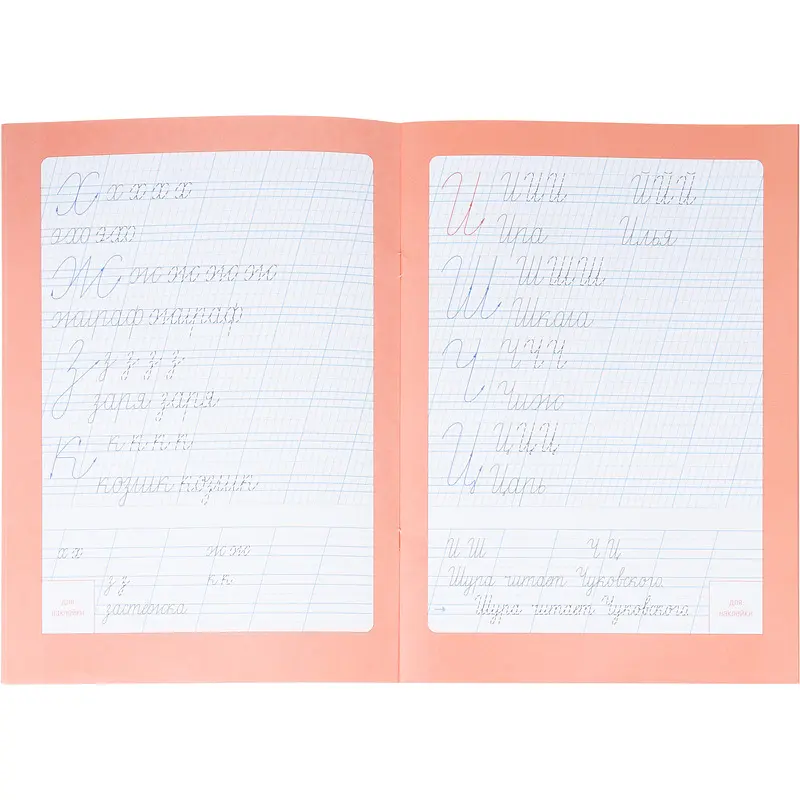 Х х х х х
эхо эхо
Ж ж ж ж ж
жираф жираф
З з з з з
заря заря
К к к к к
козлик козлик
х х ж ж
з з к к
застёжка
для наклейки
И И И И Й Й Й
Ира Илья
Ш Ш Ш Ш
Школа
Ч Ч Ч Ч
Чиж
Ц Ц Ц Ц
Царь
И Ш Ч Ц
Шура читает Чуковского
Шура читает Чуковского
для наклейки